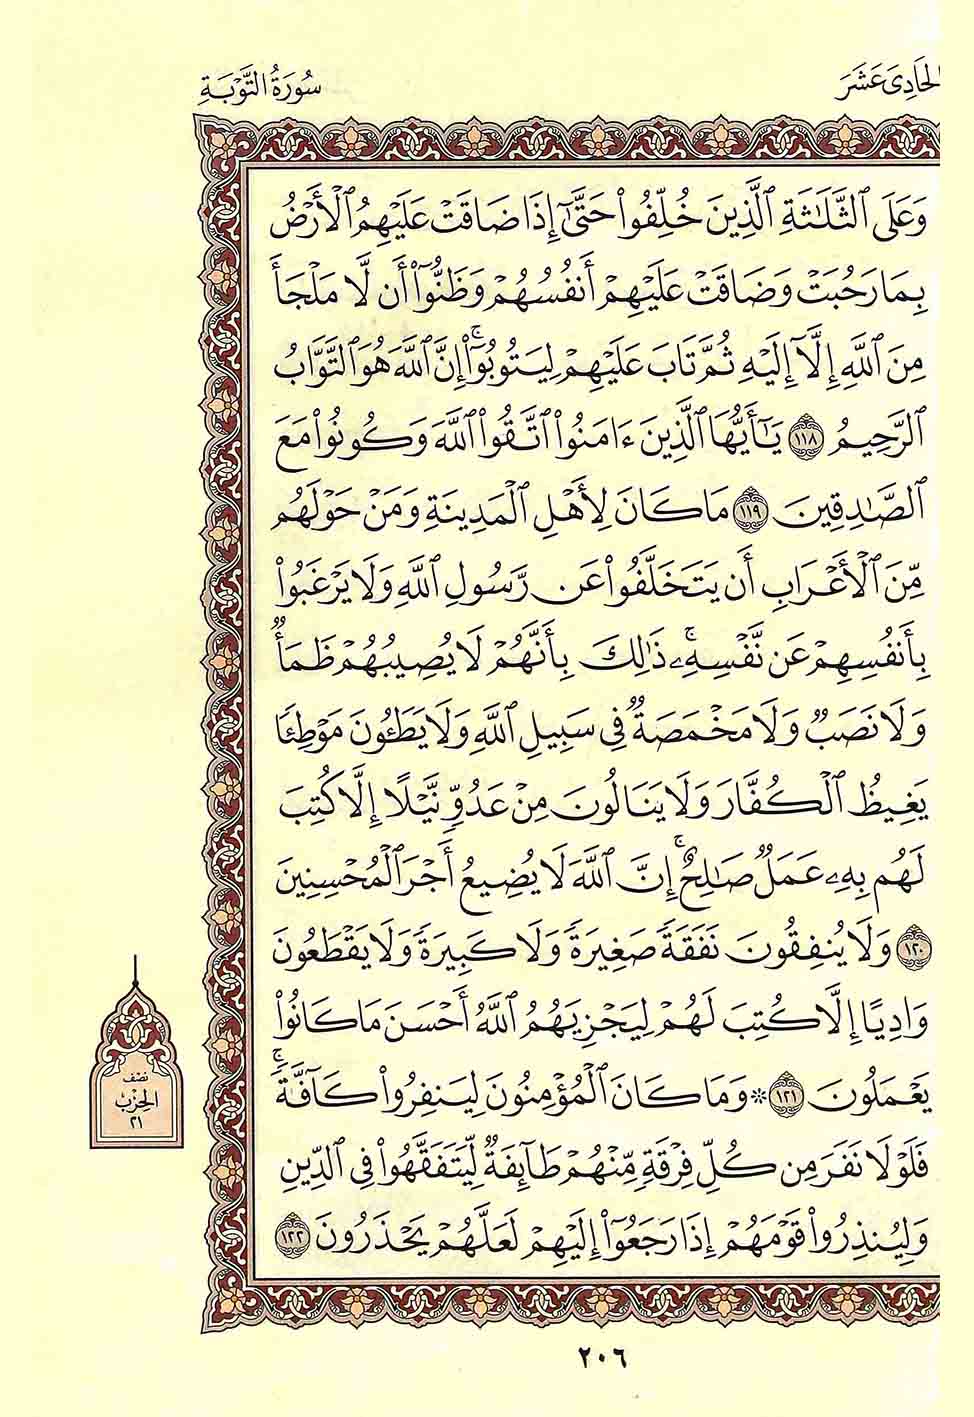 الحَادِي عَشَرَ
سُورَةُ التَّوْبَةِ
وَعَلَى ٱلثَّلَٰثَةِ ٱلَّذِينَ خُلِّفُوا۟ حَتَّىٰٓ إِذَا ضَاقَتْ عَلَيْهِمُ ٱلْأَرْضُ
بِمَا رَحُبَتْ وَضَاقَتْ عَلَيْهِمْ أَنفُسُهُمْ وَظَنُّوٓا۟ أَن لَّا مَلْجَأَ
مِنَ ٱللَّهِ إِلَّآ إِلَيْهِ ثُمَّ تَابَ عَلَيْهِمْ لِيَتُوبُوٓا۟ ۚ إِنَّ ٱللَّهَ هُوَ ٱلتَّوَّابُ
ٱلرَّحِيمُ ١١٨ يَٰٓأَيُّهَا ٱلَّذِينَ ءَامَنُوا۟ ٱتَّقُوا۟ ٱللَّهَ وَكُونُوا۟ مَعَ
ٱلصَّٰدِقِينَ ١١٩ مَا كَانَ لِأَهْلِ ٱلْمَدِينَةِ وَمَنْ حَوْلَهُم
مِّنَ ٱلْأَعْرَابِ أَن يَتَخَلَّفُوا۟ عَن رَّسُولِ ٱللَّهِ وَلَا يَرْغَبُوا۟
بِأَنفُسِهِمْ عَن نَّفْسِهِۦ ۚ ذَٰلِكَ بِأَنَّهُمْ لَا يُصِيبُهُمْ ظَمَأٌ
وَلَا نَصَبٌ وَلَا مَخْمَصَةٌ فِى سَبِيلِ ٱللَّهِ وَلَا يَطَـُٔونَ مَوْطِئًا
يَغِيظُ ٱلْكُفَّارَ وَلَا يَنَالُونَ مِنْ عَدُوٍّ نَّيْلًا إِلَّا كُتِبَ
لَهُم بِهِۦ عَمَلٌ صَٰلِحٌ ۚ إِنَّ ٱللَّهَ لَا يُضِيعُ أَجْرَ ٱلْمُحْسِنِينَ
١٢٠ وَلَا يُنفِقُونَ نَفَقَةً صَغِيرَةً وَلَا كَبِيرَةً وَلَا يَقْطَعُونَ
وَادِيًا إِلَّا كُتِبَ لَهُمْ لِيَجْزِيَهُمُ ٱللَّهُ أَحْسَنَ مَا كَانُوا۟
يَعْمَلُونَ ١٢١ ۞ وَمَا كَانَ ٱلْمُؤْمِنُونَ لِيَنفِرُوا۟ كَآفَّةً ۚ
فَلَوْلَا نَفَرَ مِن كُلِّ فِرْقَةٍ مِّنْهُمْ طَآئِفَةٌ لِّيَتَفَقَّهُوا۟ فِى ٱلدِّينِ
وَلِيُنذِرُوا۟ قَوْمَهُمْ إِذَا رَجَعُوٓا۟ إِلَيْهِمْ لَعَلَّهُمْ يَحْذَرُونَ ١٢٢
نصف
الحزب
٢١
٢٠٦